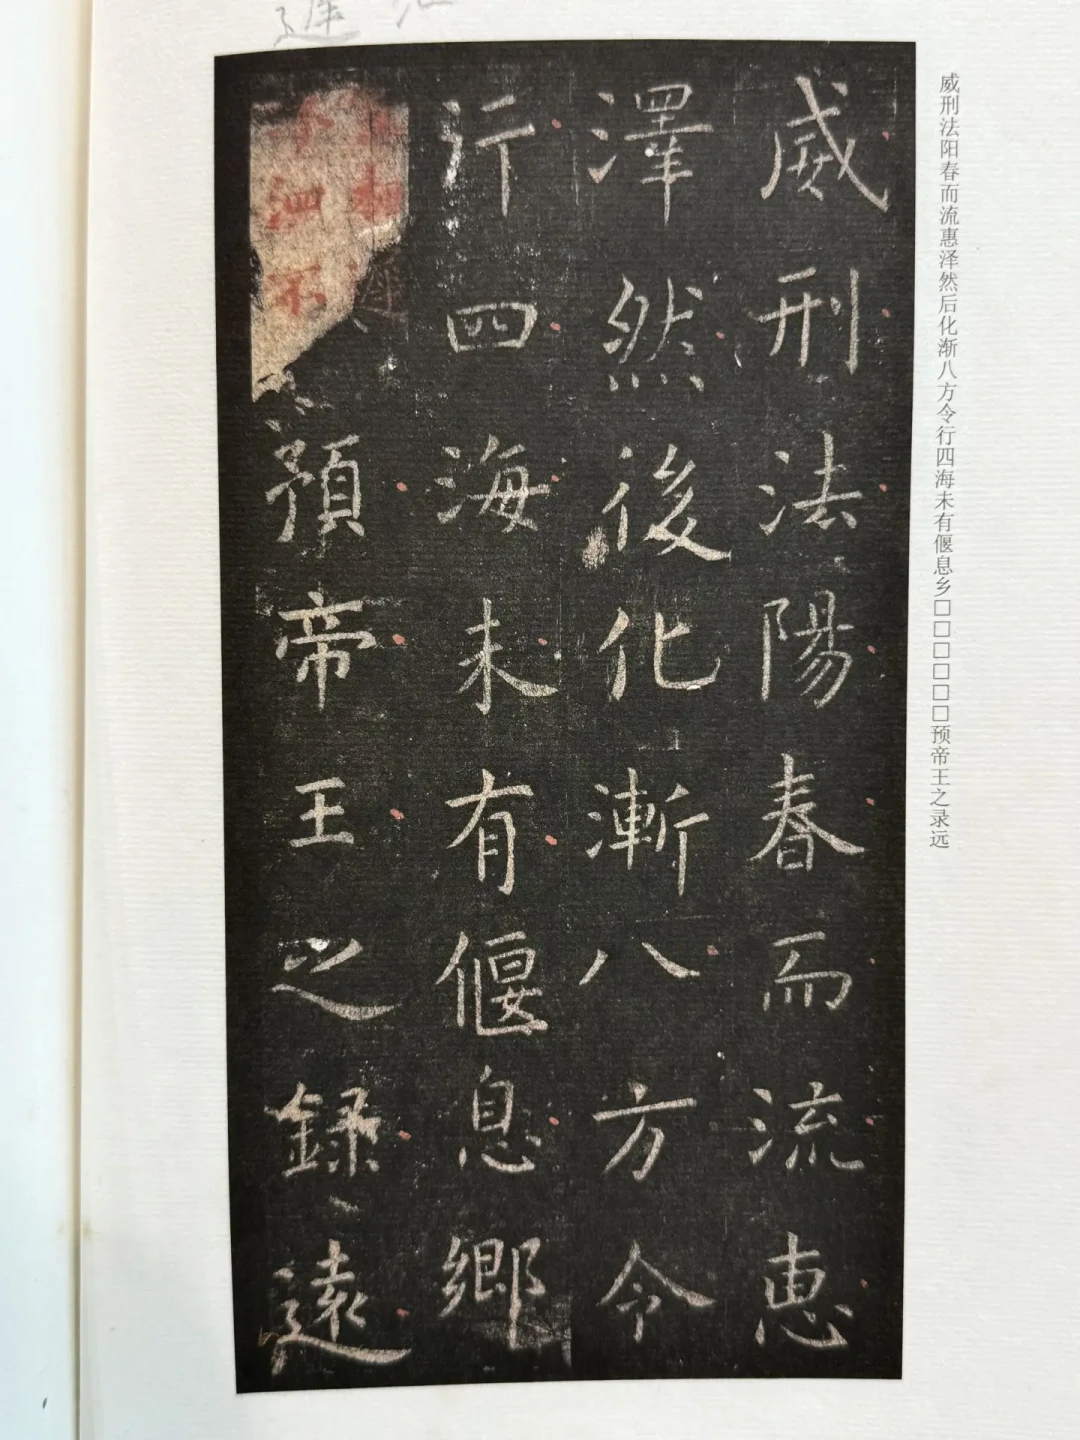 威刑法陽春而流恵
澤然後化漸八方令
行四海未有偃息鄉
預帝王之録遠
威刑法阳春而流惠泽然后化渐八方令行四海未有偃息乡□□□□□□预帝王之录远